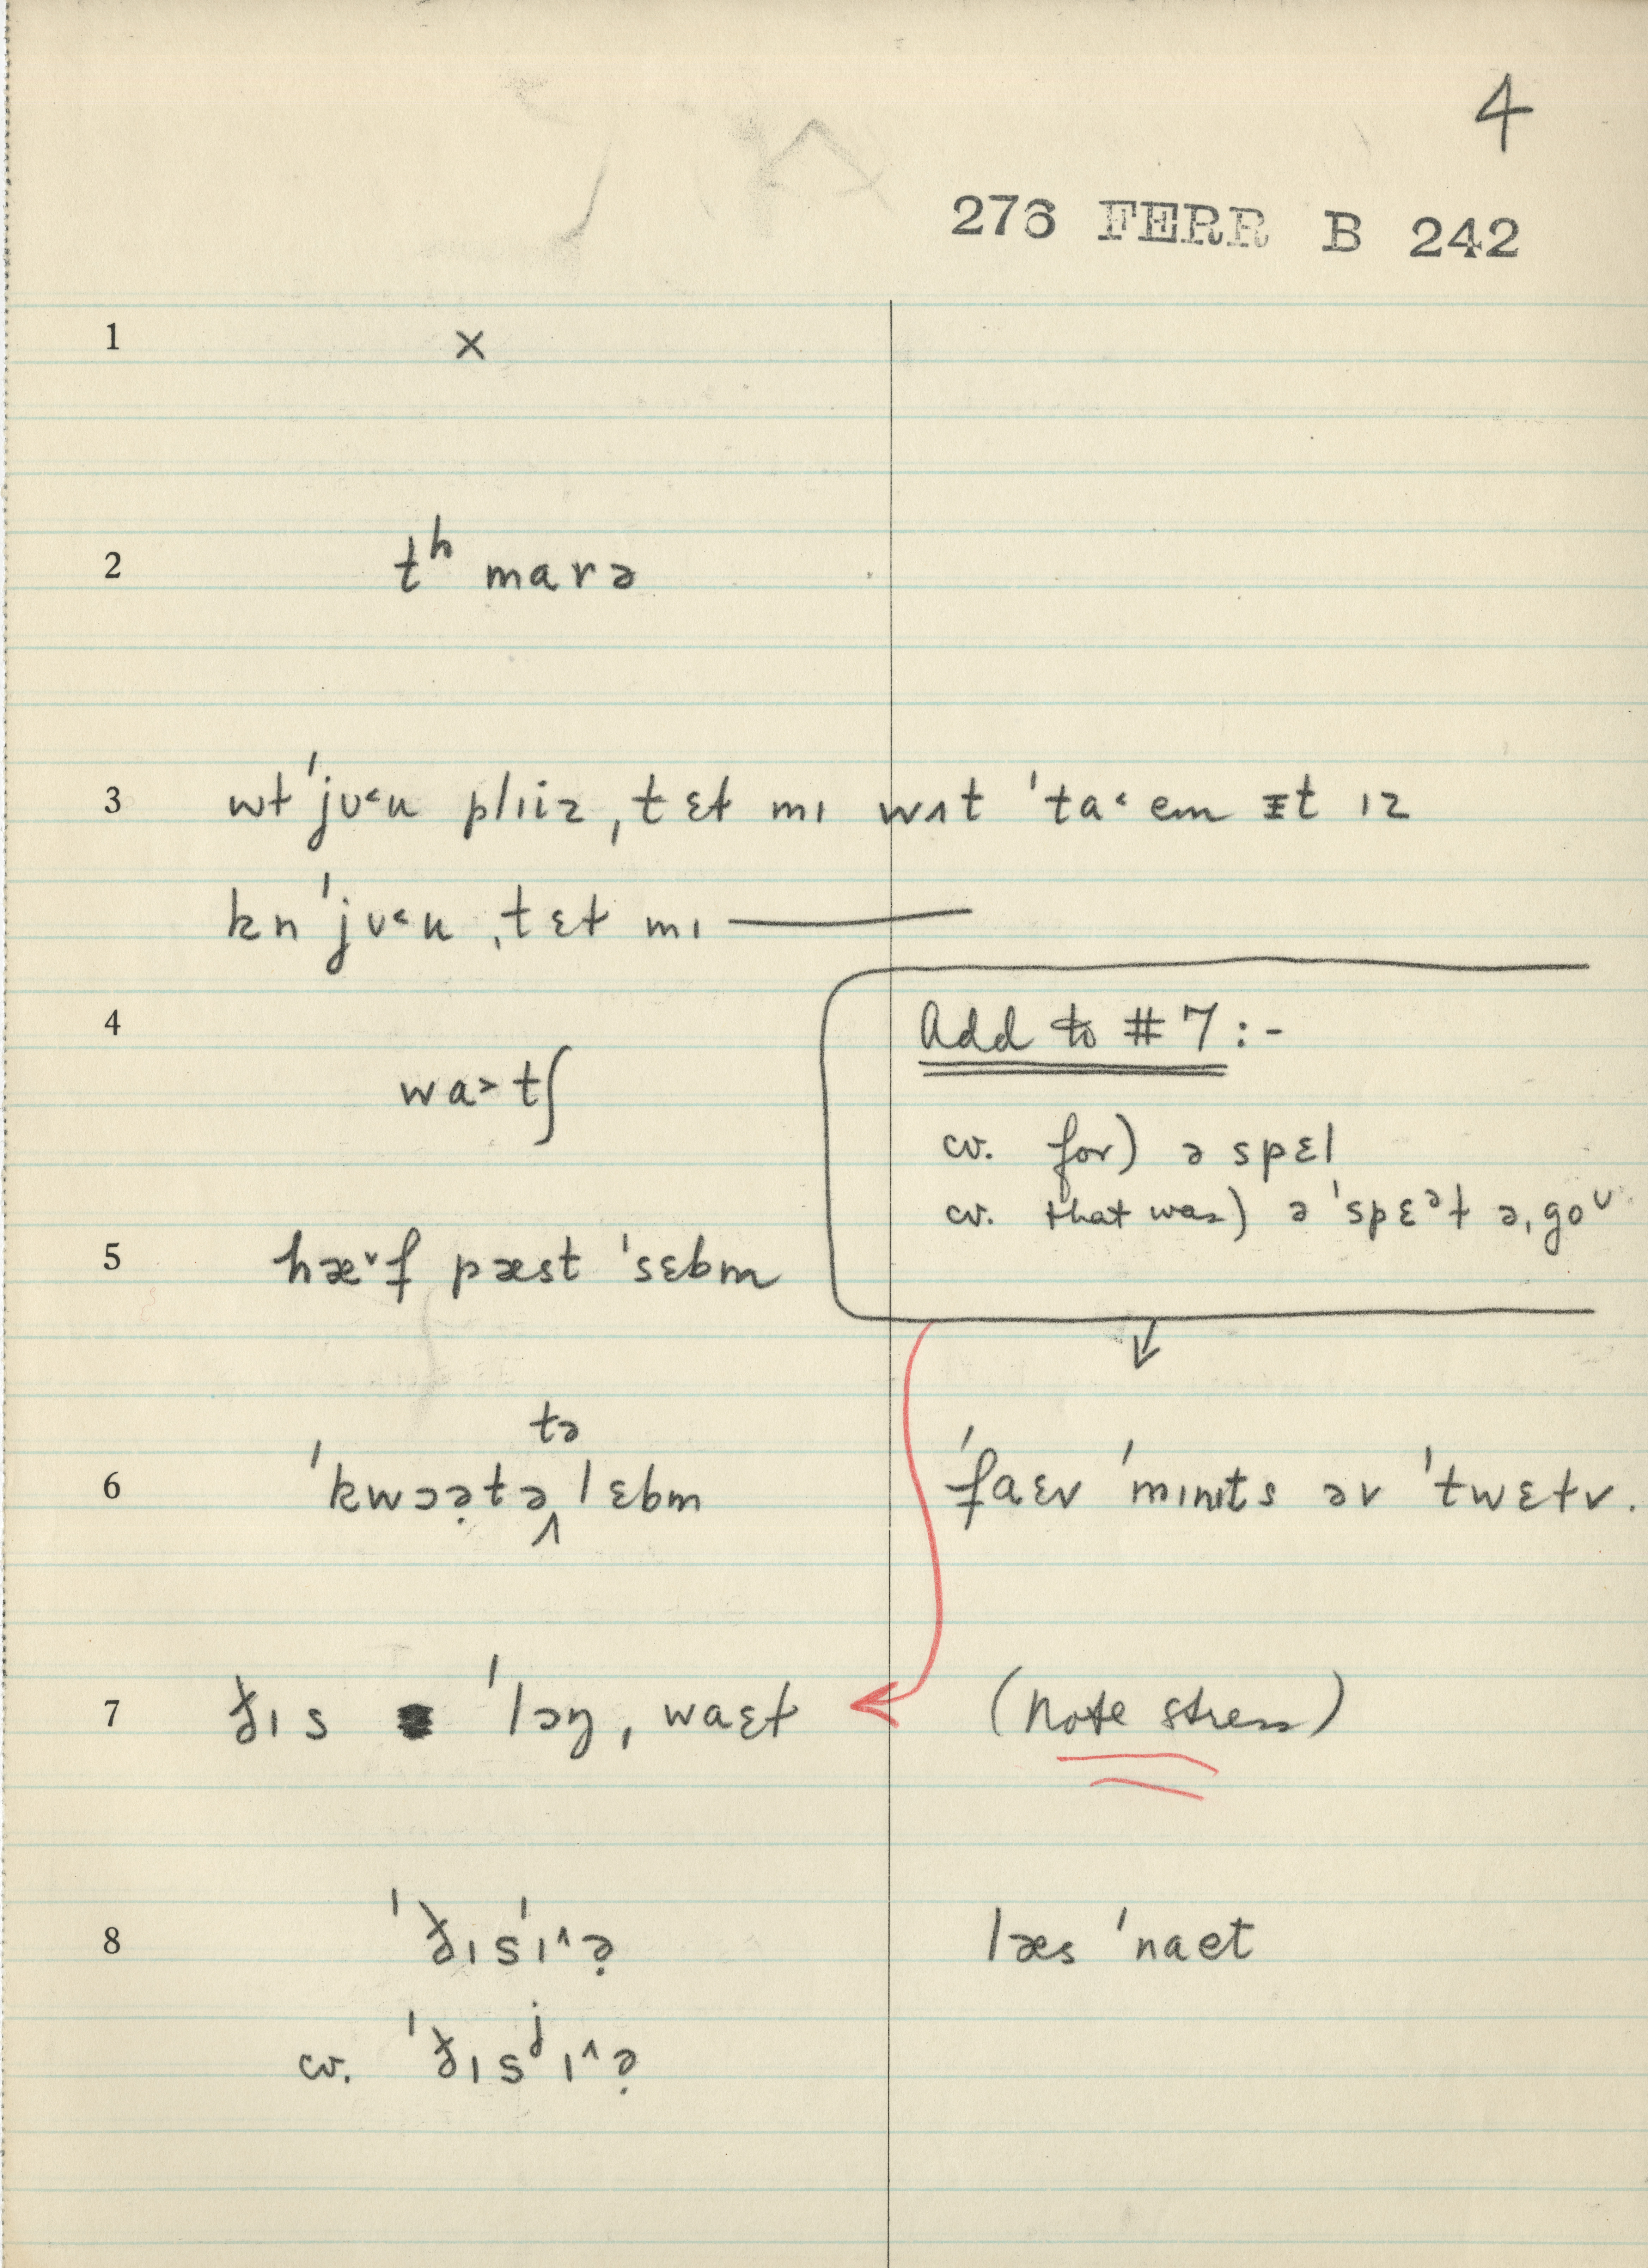 4
276 FERR B 242
1 ×
2 tʰ marə
3 wɫ ˈjʊ˂u plɪiz, ˌtɛɫ mɪ wʌt ˈta˂em ɪt ɪz
kn ˈjʊ˂u ˌtɛɫ mɪ ———
4 wa˃tʃ
Add to #7:-
cv. for) ə spɛl
cv. that was) ə ˈspɛᵊɫ əˌgoᵁ
5 hæ˅f pæst ˈsɛbm
tə
6 ˈkwɔə̣tə ‸ lɛbm
ˈfaɛv ˈmɪnɪts əv ˈtwɛɫv.
7 ðɪs ˈlɔŋ ˌwaɛɫ
(Note stress)
8 ˈðɪsˈɪ˄ə̣
læs ˈnaet
cv. ˈðɪsʲɪ˄ə̣